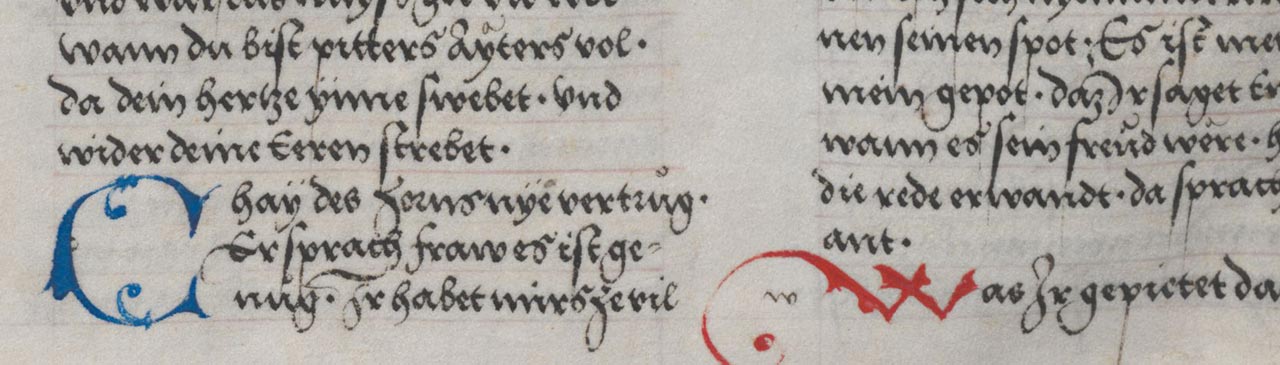 wann du bist pitters aÿters vol ·
da dein hertze ẏnne swebet · vnd
wider deine Eeren strebet ·
Chaÿ des zorns nÿe vertrůg ·
Er sprach fraw es ist ge-
nůg · Ir habet mirs ze vil
nen seinen spot : Es ist
mein gepot · daz Ir saget
wann es sein freůd wëre ·
die rede erwandt · da sprach
ant ·
w Was Ir gepietet da